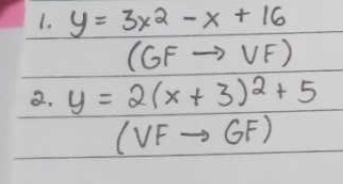 1. y = 3x2 - x + 16
(GF → VF)
2. y = 2(x + 3)2 + 5
(VF → GF)